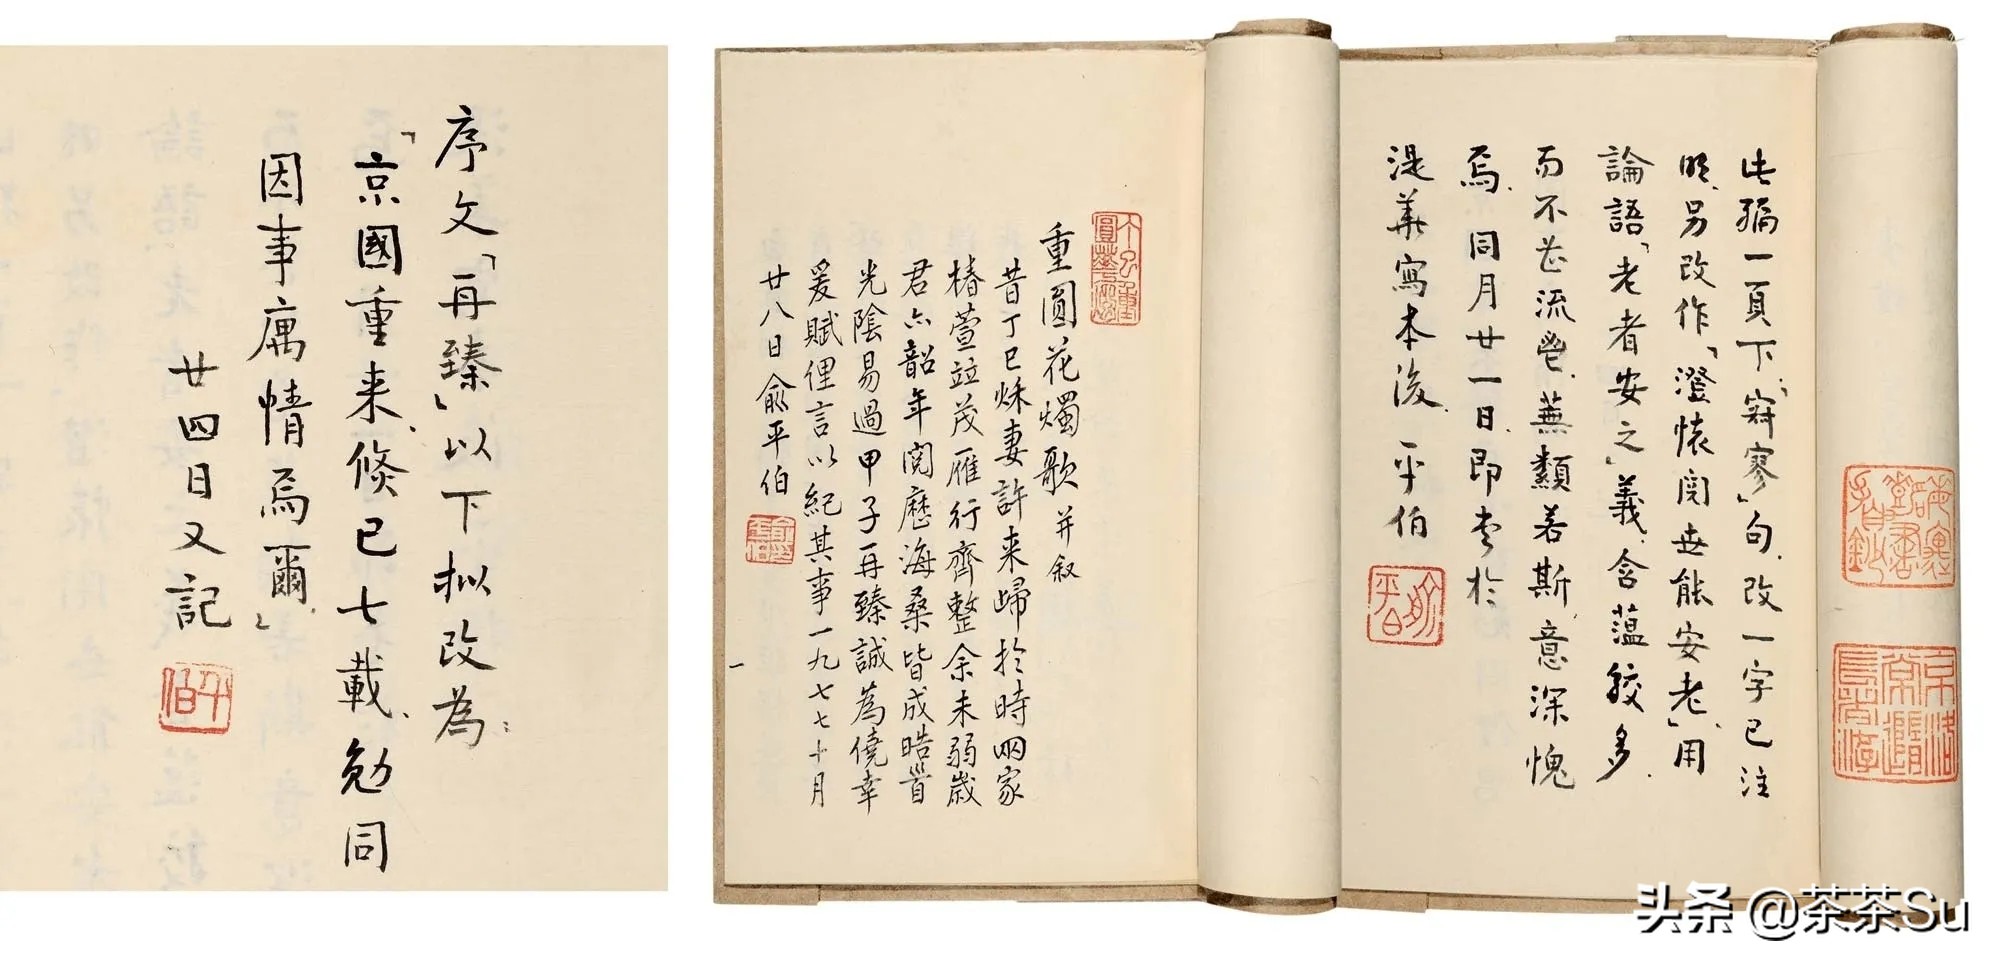 序文「再臻」以下拟改為：
「京國重来，倏已七載，勉同
因事寓情焉爾。」
廿四日又記
平伯
重圓花燭歌并叙
昔丁巳秌妻許来歸於時兩家
椿萱竝茂雁行齊整余未弱歲
君亦韶年閱歷海桑皆成晧首
光陰易過甲子再臻誠為僥幸
爰賦俚言以紀其事一九七七十月
廿八日俞平伯
一
此稿一頁下，「寂寥」句，改一字已注
明，另改作「澄懷閱世能安老」，用
論語「老者安之」義，含藴較多，
而不甚流㽞，蕪纇若斯，意深愧
焉，同月廿一日，即書於
湜華寫本後，平伯
俞平伯
头条 @茶茶Su